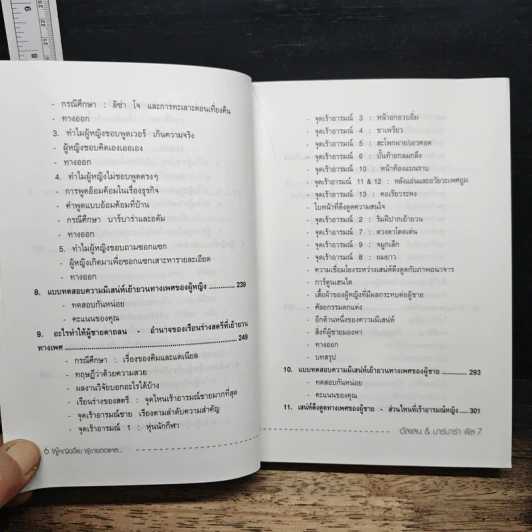 - กรณีศึกษา : ลิซ่า โจ และการทะเลาะตอนเที่ยงคืน
- ทางออก
3. ทำไมผู้หญิงชอบพูดเวอร์ เกินความจริง
- ผู้หญิงชอบคิดเองเออเอง
- ทางออก
4. ทำไมผู้หญิงไม่ชอบพูดตรงๆ
- การพูดอ้อมค้อมในเรื่องธุรกิจ
- คำพูดแบบอ้อมค้อมที่บ้าน
- กรณีศึกษา บาร์บาร่าและอดัม
- ทางออก
5. ทำไมผู้หญิงชอบถามซอกแซก
- ผู้หญิงเกิดมาเพื่อซอกแซกเสาะหารายละเอียด
- ทางออก
8. แบบทดสอบความมีเสน่ห์เย้ายวนทางเพศของผู้หญิง ............... 239
- ทดสอบกันหน่อย
- คะแนนของคุณ
9. อะไรทำให้ผู้ชายตาถลน - อำนาจของเรือนร่างสตรีที่เย้ายวน
ทางเพศ ............... 249
- กรณีศึกษา : เรื่องของคิมและแดเนียล
- ทฤษฎีว่าด้วยความสวย
- ผลงานวิจัยบอกอะไรได้บ้าง
- เรือนร่างของสตรี : จุดไหนเร้าอารมณ์ชายมากที่สุด
- จุดเร้าอารมณ์ชาย เรียงตามลำดับความสำคัญ
- จุดเร้าอารมณ์ 1 : หุ่นนักกีฬา
6 ผู้หญิงขี้โม้ ผู้ชายตอแหล...
- จุดเร้าอารมณ์ 3 : หน้าอกอวบอิ่ม
- จุดเร้าอารมณ์ 4 : ขาเพรียว
- จุดเร้าอารมณ์ 5 : สะโพกผายเอวคอด
- จุดเร้าอารมณ์ 6 : บั้นท้ายกลมกลึง
- จุดเร้าอารมณ์ 10 : หน้าท้องแบนราบ
- จุดเร้าอารมณ์ 11 & 12 : หลังแอ่นและอวัยวะเพศอูม
- จุดเร้าอารมณ์ 13 : คอเรียวระหง
- ใบหน้าที่ดึงดูดความสนใจ
- จุดเร้าอารมณ์ 2 : ริมฝีปากเย้ายวน
- จุดเร้าอารมณ์ 7 : ดวงตาโดดเด่น
- จุดเร้าอารมณ์ 9 : จมูกเล็ก
- จุดเร้าอารมณ์ 8 : ผมยาว
- ความเชื่อมโยงระหว่างเสน่ห์ดึงดูดกับภาพอนาจาร
- การ์ตูนเฮนไต
- เสื้อผ้าของผู้หญิงที่มีผลกระทบต่อผู้ชาย
- ศัลยกรรมตกแต่ง
- อีกด้านหนึ่งของความมีเสน่ห์
- สิ่งที่ผู้ชายมองหา
- ทางออก
- บทสรุป
10. แบบทดสอบความมีเสน่ห์เย้ายวนทางเพศของผู้ชาย ............... 293
- ทดสอบกันหน่อย
- คะแนนของคุณ
11. เสน่ห์ดึงดูดทางเพศของผู้ชาย - ส่วนไหนที่เร้าอารมณ์หญิง ..... 301
อัลแลน & บาร์บาร่า พีส 7